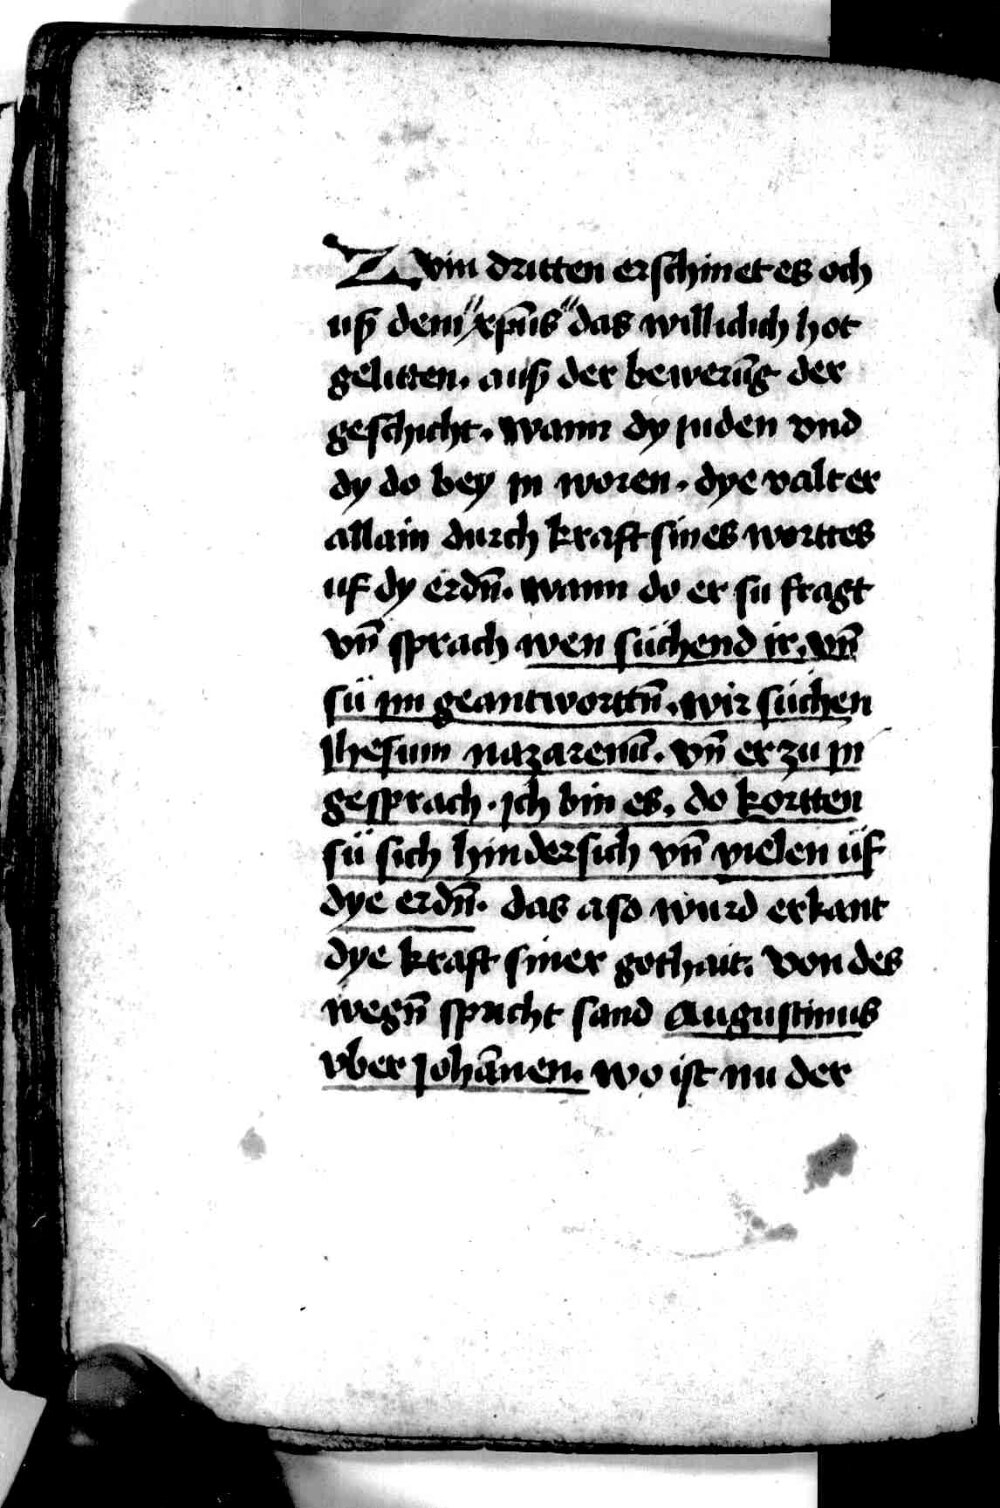 Zvm dritten erschinet es och
uß dem "xp̄us" das willidich hot
gelitten. auß der bewerūg der
geschicht. wann dy juden vnd
dy do bey jn woren. dye valt er
allain durch kraft sines worttes
uf dy erdn̄. wann do er sü fragt
vn̄ sprach wen süchend ir. vn̄
sü im geantworttn̄. wir süchen
Jhesum nazarenū. vn̄ er zu jn
gesprach. jch bin es. do kortten
sü sich hindersich vn̄ vielen üf
dye erdn̄. das aso wurd erkant
dye kraft siner gothait. von des
wegn̄ spricht sand Augustinus
vber Johānem. wo ist nu der